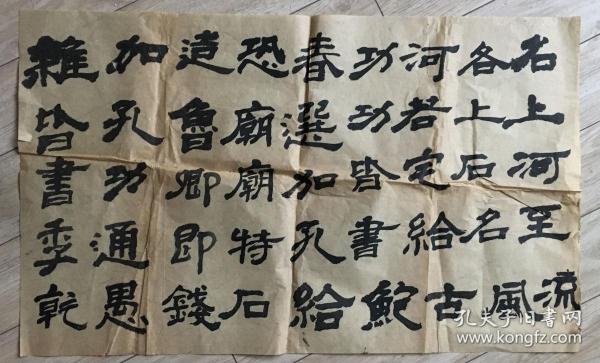 名上河至流
各上石名風
河者定給古
功功皆書鮀
春選加孔給
恐廟廟特石
造魯卿即錢
加孔功通愚
雜皆書季乾
孔夫子旧书网
www.kongfz.com